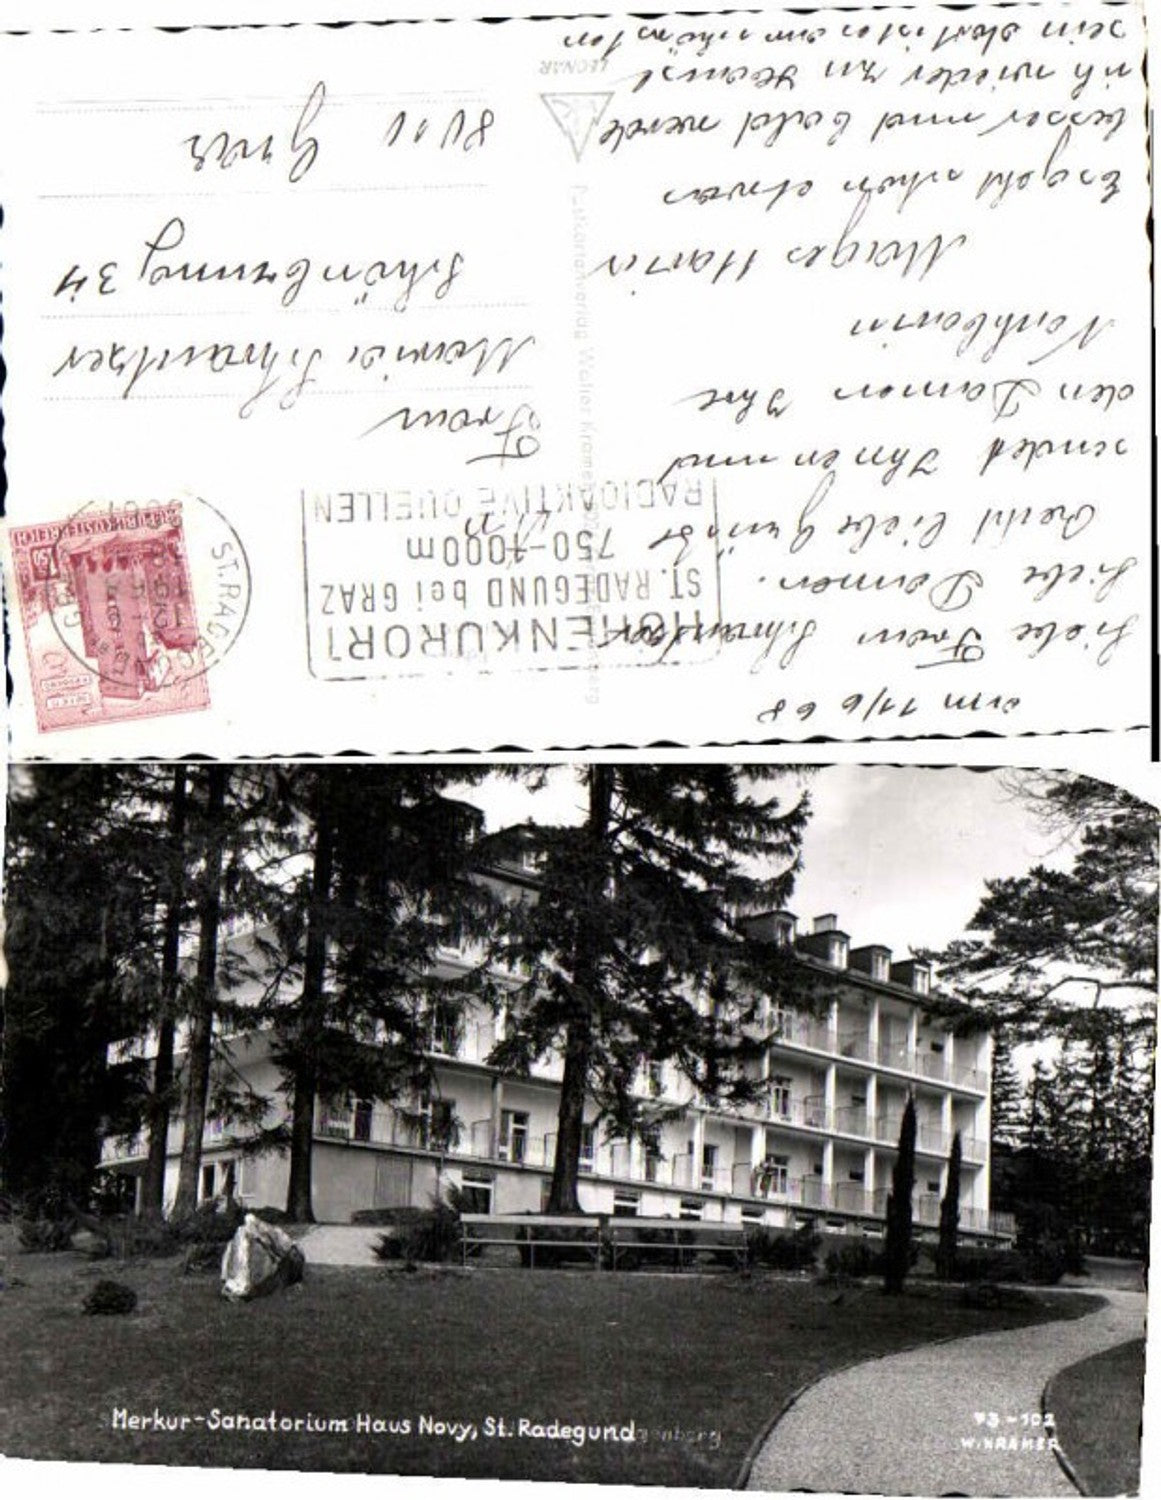 am 11/6 68
Liebe Frau Schrantzer
Liebe Damen.
Recht liebe Grüße
sendet Ihnen und
den Damen Ihre
Nachbarin
Maria
Es geht schon etwas
besser und bald werde
ich wieder zu Hause
sein dort ist es am schönsten
HÖHENKURORT
ST. RADEGUND bei GRAZ
750-1000m
RADIOAKTIVE QUELLEN
ST. RADEGUND BEI GRAZ
REPUBLIK ÖSTERREICH
Frau
Maria Schrantzer
Schönbrunng 34
8010 Graz
Postkartenverlag Walter Kramer
LEONAR
Merkur-Sanatorium Haus Novy, St. Radegund
73-102
W. KRAMER